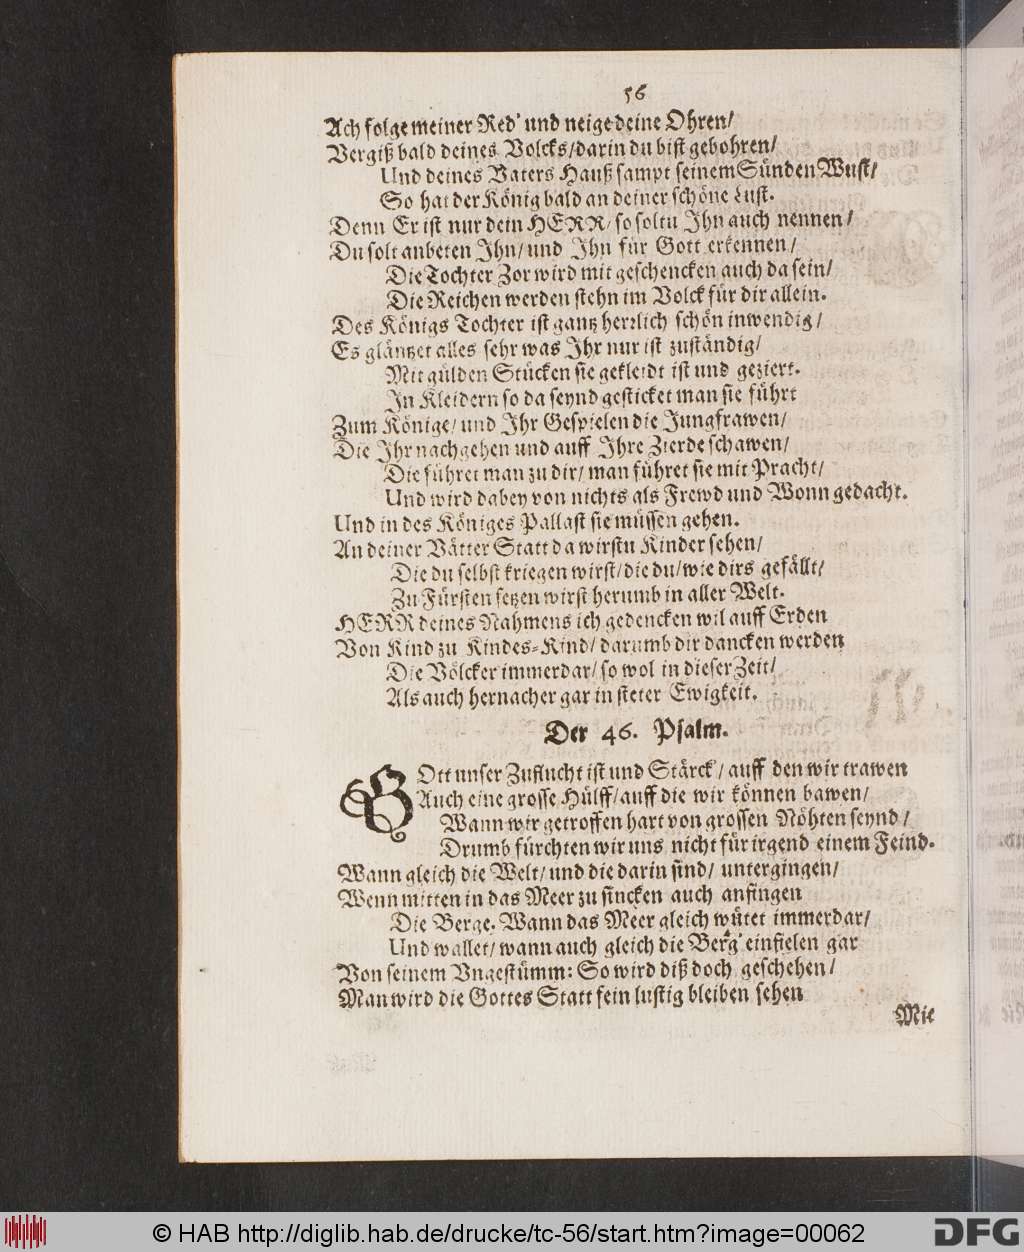 56
Ach folge meiner Red' und neige deine Ohren/
Vergiß bald deines Volcks/darin du bist gebohren/
Und deines Vaters Hauß sampt seinem Sünden Wust/
So hat der König bald an deiner schöne Lust.
Denn Er ist nur dein HERR/ so soltu Ihn auch nennen/
Du solt anbeten Ihn/ und Ihn für Gott erkennen/
Die Tochter Zor wird mit geschencken auch da sein/
Die Reichen werden stehn im Volck für dir allein.
Des Königs Tochter ist gantz herzlich schön inwendig/
Es gläntzet alles sehr was Ihr nur ist zuständig/
Mit gülden Stücken sie gekleidt ist und geziert.
In Kleidern so da seynd gesticket man sie führt
Zum Könige/ und Ihr Gespielen die Jungfrawen/
Die Ihr nachgehen und auff Ihre Zierde schawen/
Die führet man zu dir/ man führet sie mit Pracht/
Und wird dabey von nichts als Frewd und Wonn gedacht.
Und in des Königes Pallast sie müssen gehen.
An deiner Vätter Statt da wirstu Kinder sehen/
Die du selbst kriegen wirst/die du/wie dirs gefällt/
Zu Fürsten setzen wirst herumb in aller Welt.
HERR deines Nahmens ich gedencken wil auff Erden
Von Kind zu Kindes-Kind/ darumb dir dancken werden
Die Völcker immerdar/ so wol in dieser Zeit/
Als auch hernacher gar in steter Ewigkeit.
Der 46. Psalm.
GOtt unser Zuflucht ist und Stärck'/ auff den wir trawen
Auch eine grosse Hülff/auff die wir können bawen/
Wann wir getroffen hart von grossen Nöhten seynd/
Drumb fürchten wir uns nicht für irgend einem Feind.
Wann gleich die Welt/ und die darin sind/ untergingen/
Wenn mitten in das Meer zu sincken auch anfingen
Die Berge. Wann das Meer gleich wütet immerdar/
Und wallet/ wann auch gleich die Berg' einfielen gar
Von seinem Vngestümm: So wird diß doch geschehen/
Man wird die Gottes Statt fein lustig bleiben sehen
Mit
© HAB http://diglib.hab.de/drucke/tc-56/start.htm?image=00062
DFG